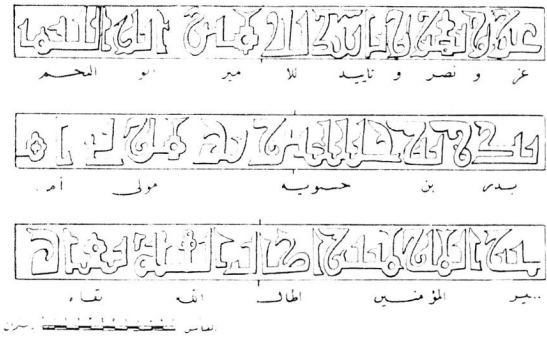 عز و نصر و تاييد للا مير ابو النجم
بدر بن حسويه مولى أم
ـير المؤمنين اطال الله بقاء